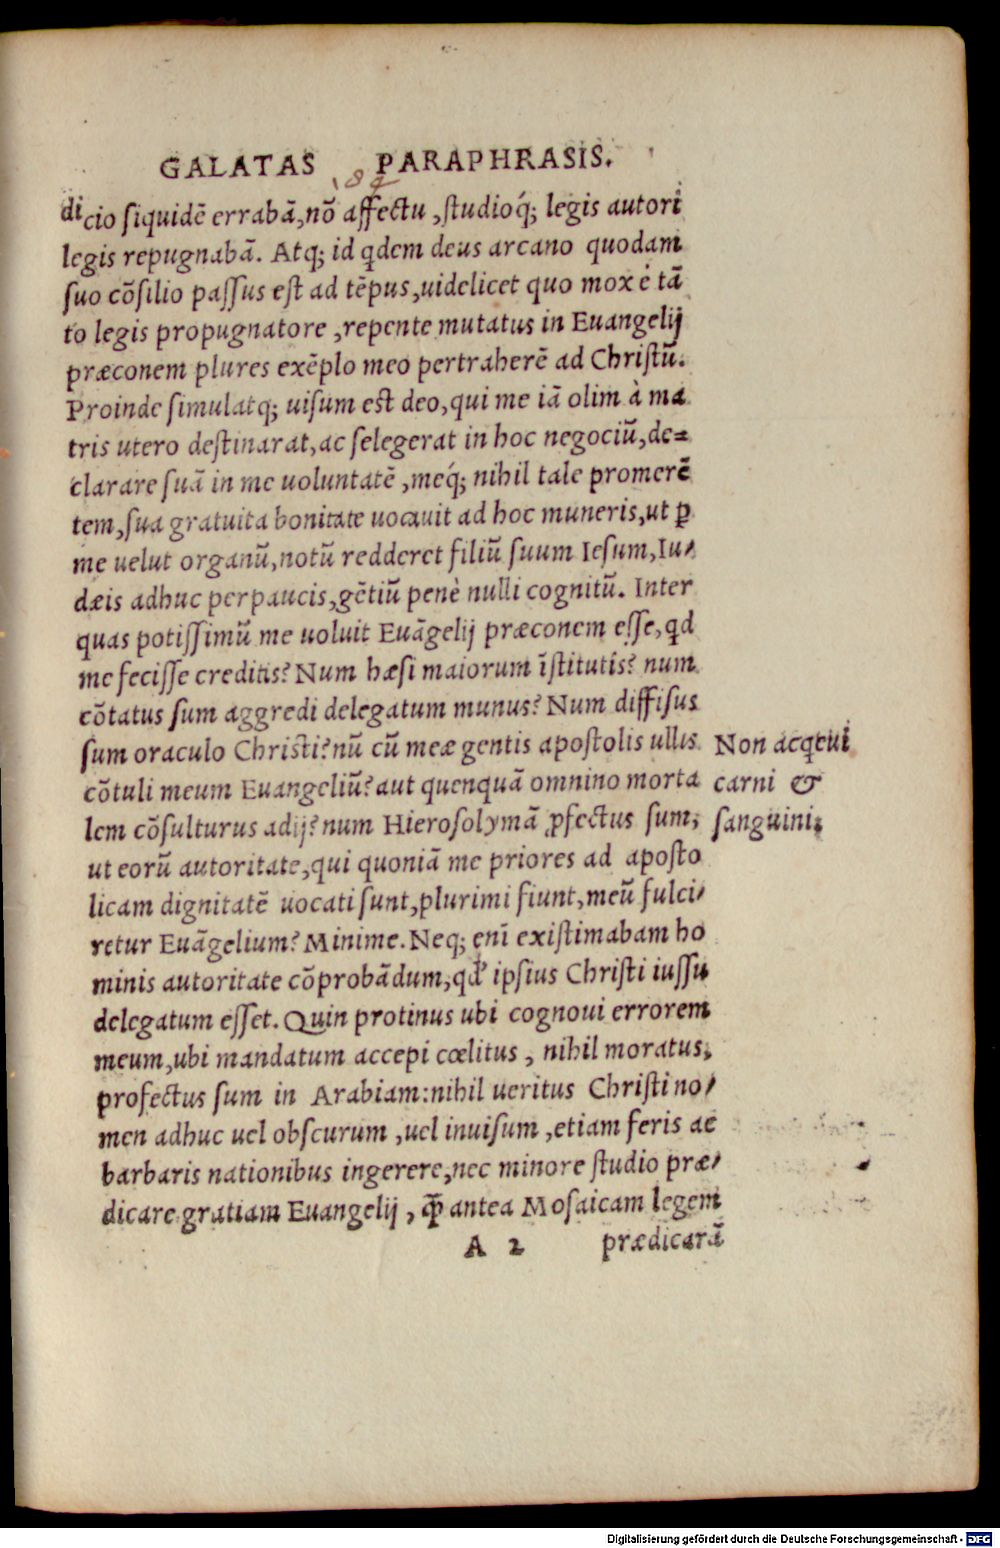 GALATAS PARAPHRASIS.
dicio siquidē errabā, nō affectu, studioq́; legis autori
legis repugnabā. Atq; id qdem deus arcano quodam
suo cōsilio passus est ad tēpus, uidelicet quo mox è tā
to legis propugnatore, repente mutatus in Euangelij
præconem plures exēplo meo pertraherē ad Christū.
Proinde simulatq; uisum est deo, qui me iā olim à ma
tris utero destinarat, ac selegerat in hoc negociū, de=
clarare suā in me uoluntatē, meq́; nihil tale promerē
tem, sua gratuita bonitate uocauit ad hoc muneris, ut ꝑ
me uelut organū, notū redderet filiū suum Iesum, Iu/
dæis adhuc perpaucis, gētiū penè nulli cognitū. Inter
quas potissimū me uoluit Euāgelij præconem esse, qd
me fecisse creditis? Num hæsi maiorum īstitutis? num
cōtatus sum aggredi delegatum munus? Num diffisus
sum oraculo Christi? nū cū meæ gentis apostolis ullis
cōtuli meum Euangeliū? aut quenquā omnino morta
lem cōsulturus adij? num Hierosolymā ꝓfectus sum,
ut eorū autoritate, qui quoniā me priores ad aposto
licam dignitatē uocati sunt, plurimi fiunt, meū fulci/
retur Euāgelium? Minime. Neq; enī existimabam ho
minis autoritate cōprobādum, qd' ipsius Christi iussu
delegatum esset. Quin protinus ubi cognoui errorem
meum, ubi mandatum accepi cœlitus, nihil moratus,
profectus sum in Arabiam: nihil ueritus Christi no/
men adhuc uel obscurum, uel inuisum, etiam feris ac
barbaris nationibus ingerere, nec minore studio præ/
dicare gratiam Euangelij, ꝙ̄ antea Mosaicam legem
A 2 prædicarā
Non acqeui
carni &
sanguini.
Digitalisierung gefördert durch die Deutsche Forschungsgemeinschaft - DFG